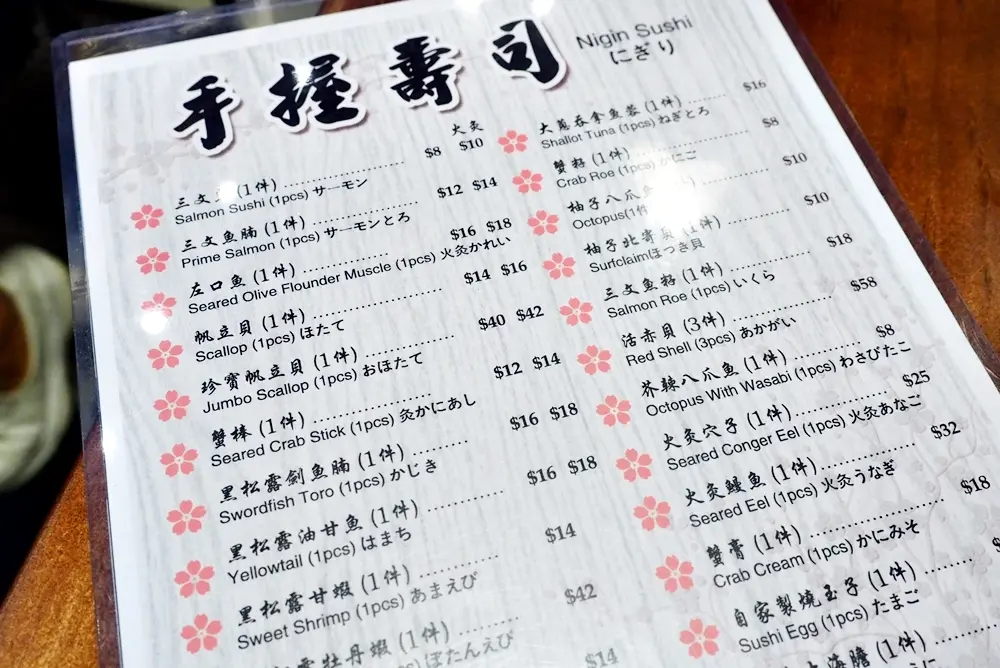 手握壽司
Nigin Sushi
にぎり
火炙
$8 $10
三文 (1件)
Salmon Sushi (1pcs) サーモン
$12 $14
三文魚腩 (1件)
Prime Salmon (1pcs) サーモンとろ
$16 $18
左口魚 (1件)
Seared Olive Flounder Muscle (1pcs) 火炙かれい
$14 $16
帆立貝 (1件)
Scallop (1pcs) ほたて
$40 $42
珍寶帆立貝 (1件)
Jumbo Scallop (1pcs) おほたて
$12 $14
蟹棒 (1件)
Seared Crab Stick (1pcs) 炙かにあし
$16 $18
黑松露劍魚腩 (1件)
Swordfish Toro (1pcs) かじき
$16 $18
黑松露油甘魚 (1件)
Yellowtail (1pcs) はまち
$14
黑松露甘蝦 (1件)
Sweet Shrimp (1pcs) あまえび
$42
露牡丹蝦 (1件)
(1pcs) ぼたんえび
$14
大蔥吞拿魚蓉 (1件) $16
Shallot Tuna (1pcs) ねぎとろ
蟹籽 (1件) $8
Crab Roe (1pcs) かにご
柚子八爪魚 $10
Octopus(1件
柚子北寄貝 (1件) $10
Surfclaimほつき貝
三文魚籽 (1件) $18
Salmon Roe (1pcs) いくら
活赤貝 (3件) $58
Red Shell (3pcs) あかがい
芥辣八爪魚 (1件) $8
Octopus With Wasabi (1pcs) わさびたこ
火炙穴子 (1件) $25
Seared Conger Eel (1pcs) 火炙あなご
火炙鰻魚 (1件) $32
Seared Eel (1pcs) 火炙うなぎ
蟹膏 (1件) $18
Crab Cream (1pcs) かにみそ
自家製燒玉子 (1件)
Sushi Egg (1pcs) たまご
(1件)